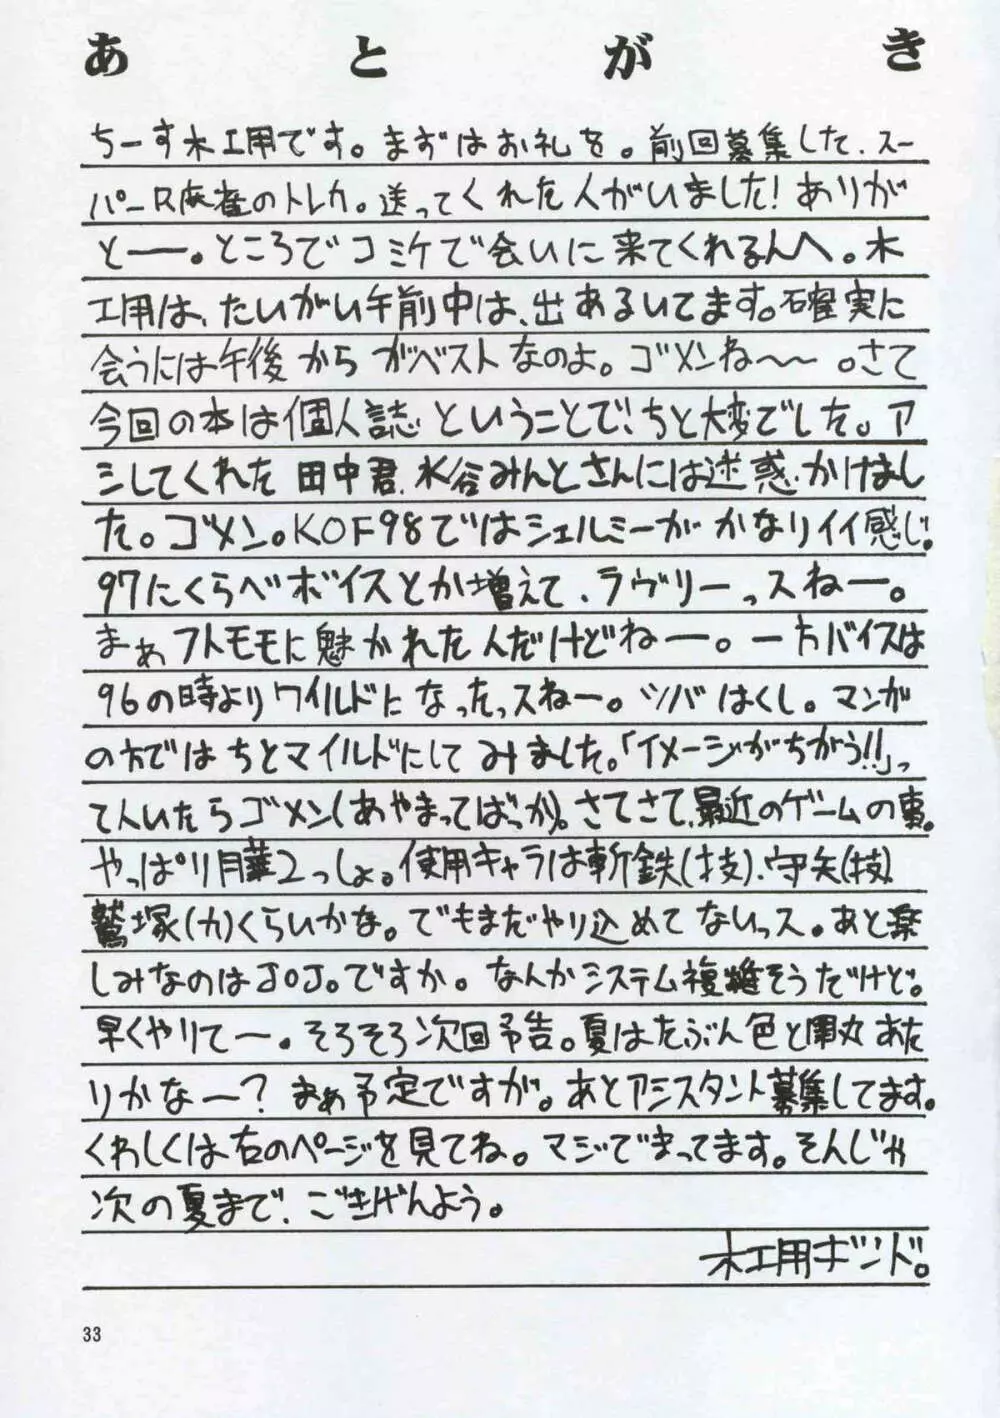 あとがき
ちーす木工用です。まずはお礼を。前回募集した、スー
パーR麻雀のトレカ。送ってくれた人がいました!ありが
とーー。ところでコミケで会いに来てくれるんへ。木
工用は、たいがい午前中は、出あるいてます。確実に
会うには午後からがベストなのよ。ゴメンね〜〜。さて
今回の本は個人誌ということで、ちと大変でした。ア
シしてくれた田中君、水谷みんとさんには迷惑かけまし
た。ゴメン。KOF98ではシェルミーがかなりイイ感じ。
97にくらべボイスとか増えて、ラヴリーっスねー。
まぁフトモモに魅かれた人だけどねー。一方バイスは
96の時よりワイルドになったっスねー。ツバはくし。マンガ
の方ではちとマイルドにしてみました。「イメージがちがう!!」っ
て人いたらゴメン(あやまってばっか)。さてさて、最近のゲームの事。
やっぱり月華2っしょ。使用キャラは斬鉄(技)、守矢(技)
鷲塚(力)くらいかな。でもまだやり込めてないっス。あと楽
しみなのはJOJO。ですか。なんかシステム複雑そうだけど。
早くやりてー。そろそろ次回予告。夏はたぶん色と蘭丸あた
りかなー?まぁ予定ですが。あとアシスタント募集してます。
くわしくは右のページを見てね。マジでまってます。そんじゃ
次の夏まで、ごきげんよう。
木工用ボンド。
33